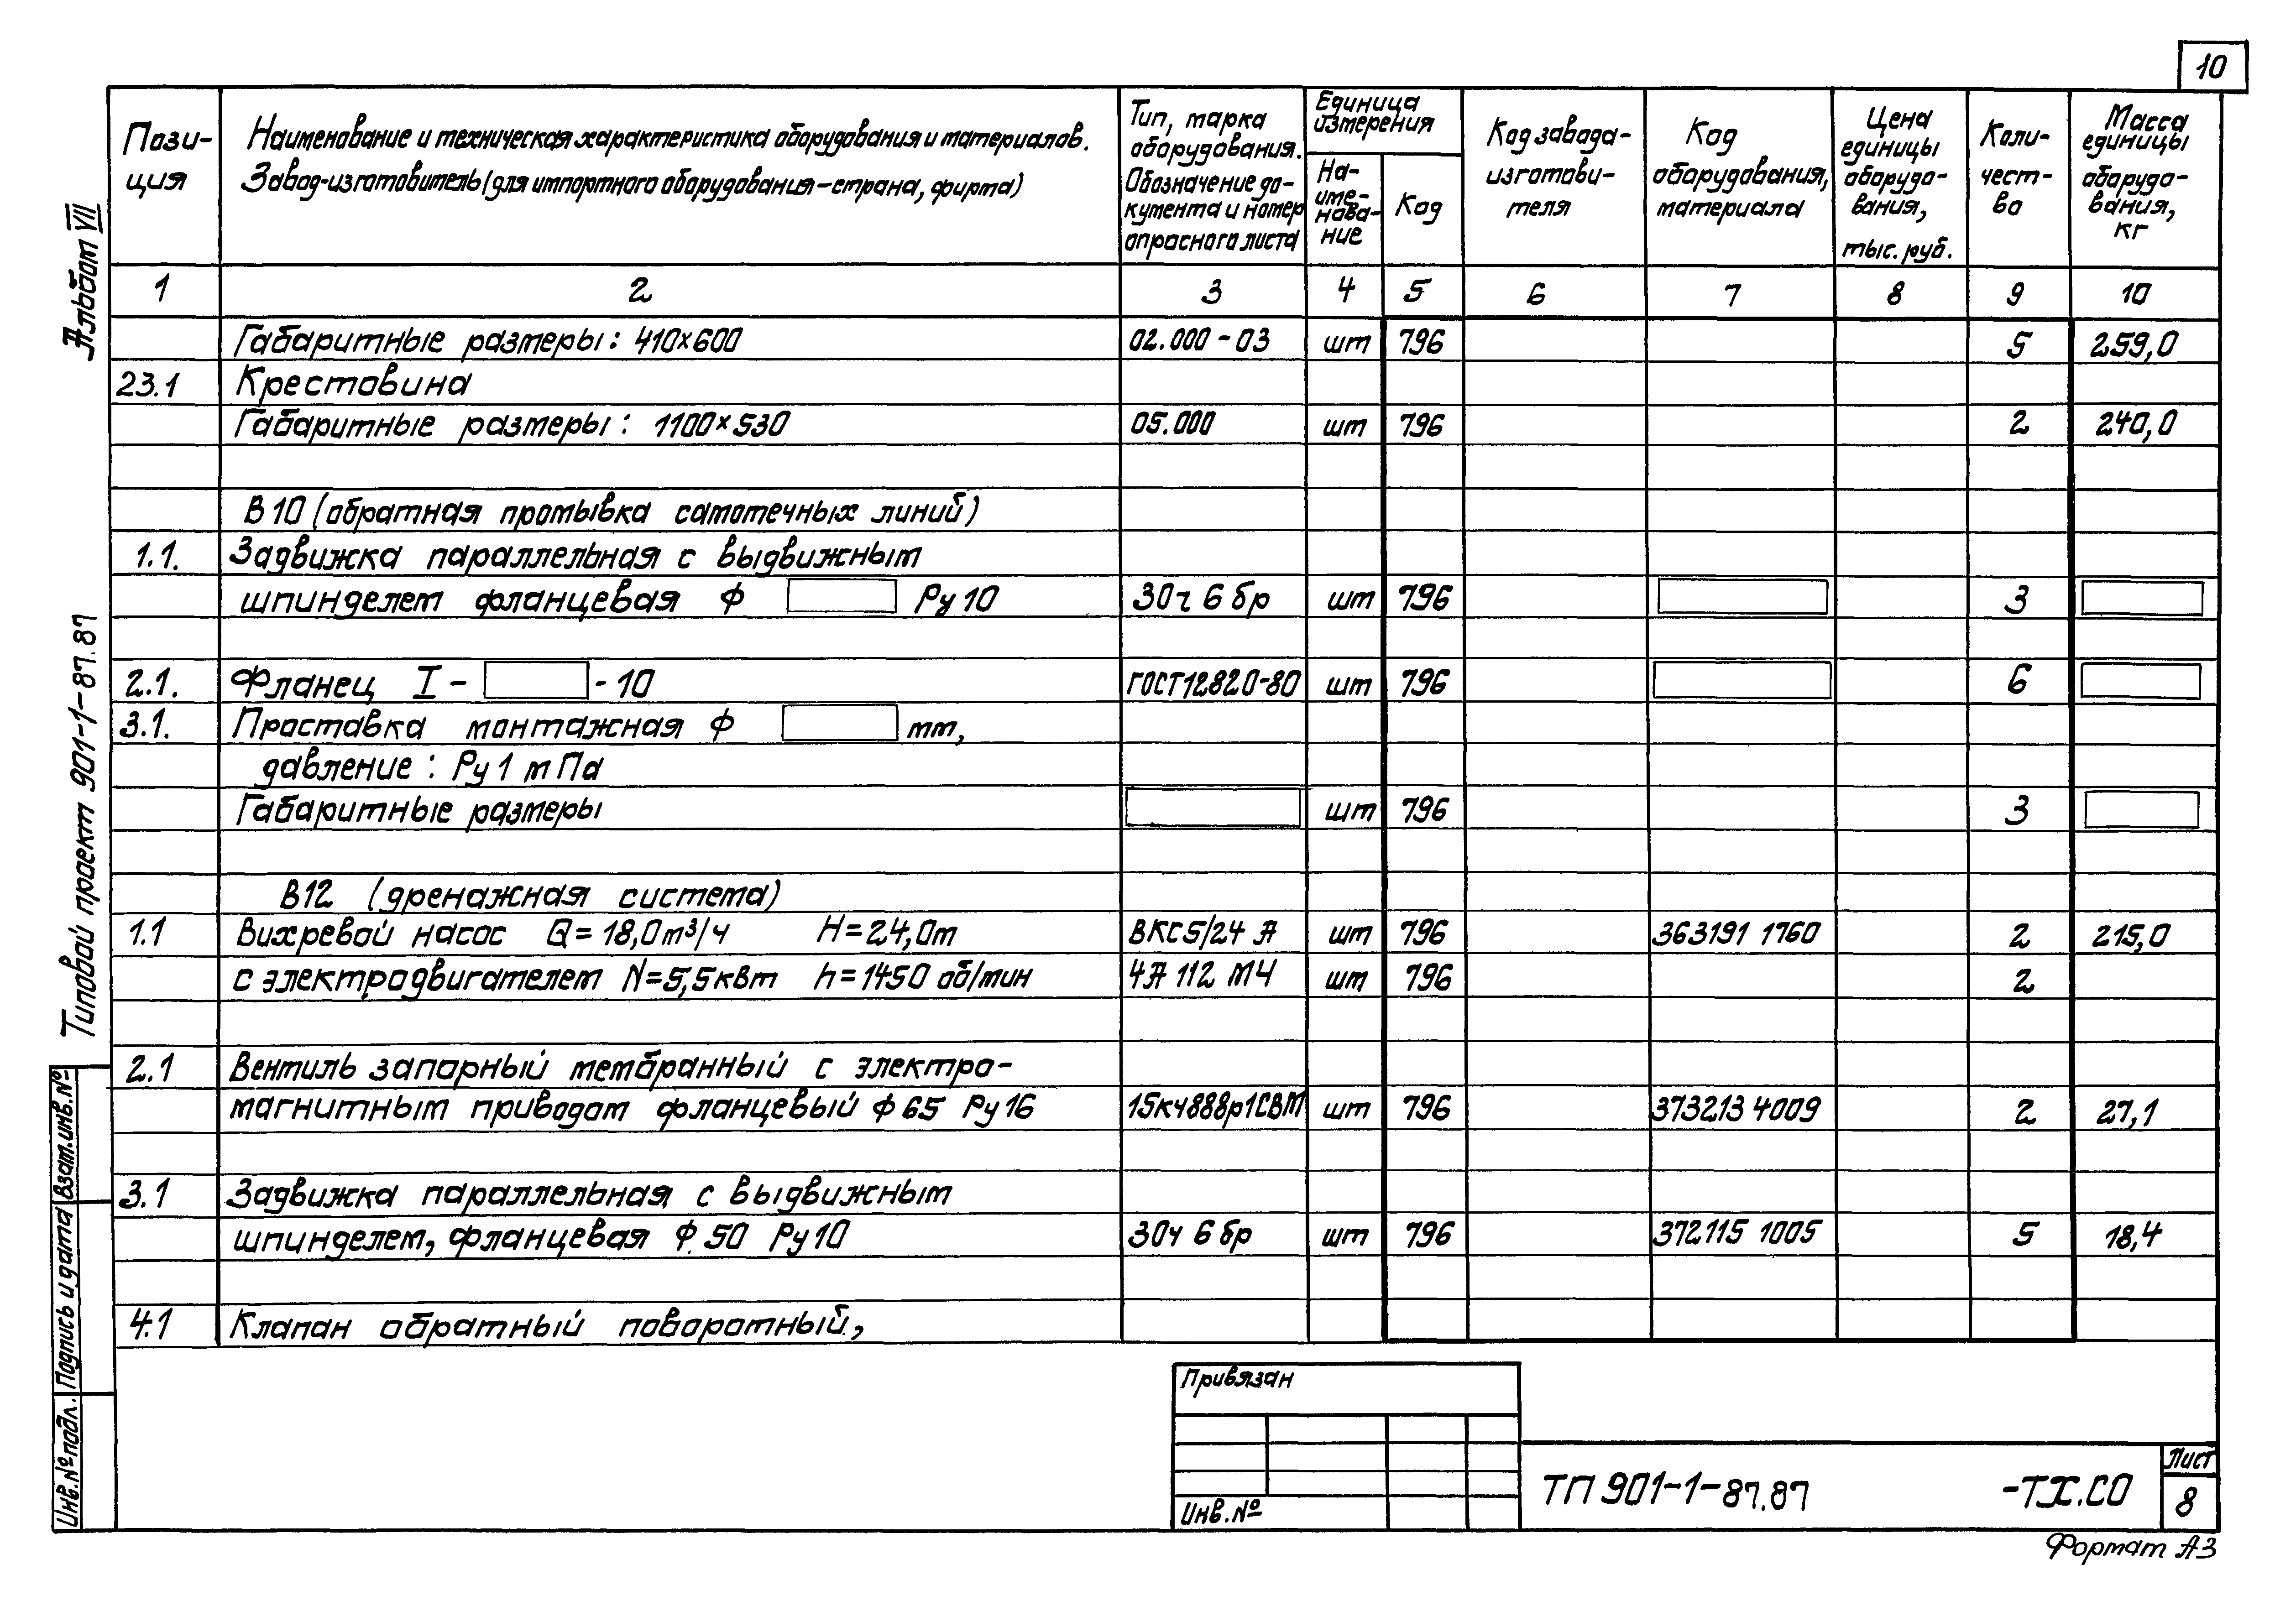 10
Пози-
ция
Наименование и техническая характеристика оборудования и материалов.
Завод-изготовитель (для импортного оборудования-страна, фирма)
Тип, марка
оборудования.
Обозначение до-
кумента и номер
опросного листа
Единица
измерения
На-
име-
нова-
ние
Код
Код завода-
изготови-
теля
Код
оборудования,
материала
Цена
единицы
оборудо-
вания,
тыс. руб.
Коли-
чест-
во
Масса
единицы
оборудо-
вания,
кг
1 2 3 4 5 6 7 8 9 10
Габаритные размеры: 410×600 02.000-03 шт 796 5 259,0
23.1 Крестовина
Габаритные размеры: 1100×530 05.000 шт 796 2 240,0
В10 (обратная промывка самотечных линий)
1.1. Задвижка параллельная с выдвижным
шпинделем фланцевая ф Ру 10 30ч 6 бр шт 796 3
2.1. Фланец I- -10 ГОСТ 12820-80 шт 796 6
3.1. Проставка монтажная ф мм,
давление: Ру 1 мПа
Габаритные размеры шт 796 3
В12 (дренажная система)
1.1 Вихревой насос Q=18,0м³/ч H=24,0м ВКС5/24 А шт 796 363191 1760 2 215,0
с электродвигателем N=5,5квт n=1450 об/мин 4А 112 М4 шт 796 2
2.1 Вентиль запорный мембранный с электро-
магнитным приводом фланцевый ф 65 Ру 16 15кч888р1СВМ шт 796 373213 4009 2 27,1
3.1 Задвижка параллельная с выдвижным
шпинделем, фланцевая ф 50 Ру 10 30ч 6 бр шт 796 372115 1005 5 18,4
4.1 Клапан обратный поворотный,
Альбом VII
Типовой проект 901-1-87.87
Взам.инв.№
Подпись и дата
Инв.№ подл.
Привязан
Инв.№
ТП 901-1-87.87 -ТХ.СО
Лист
8
Формат А3